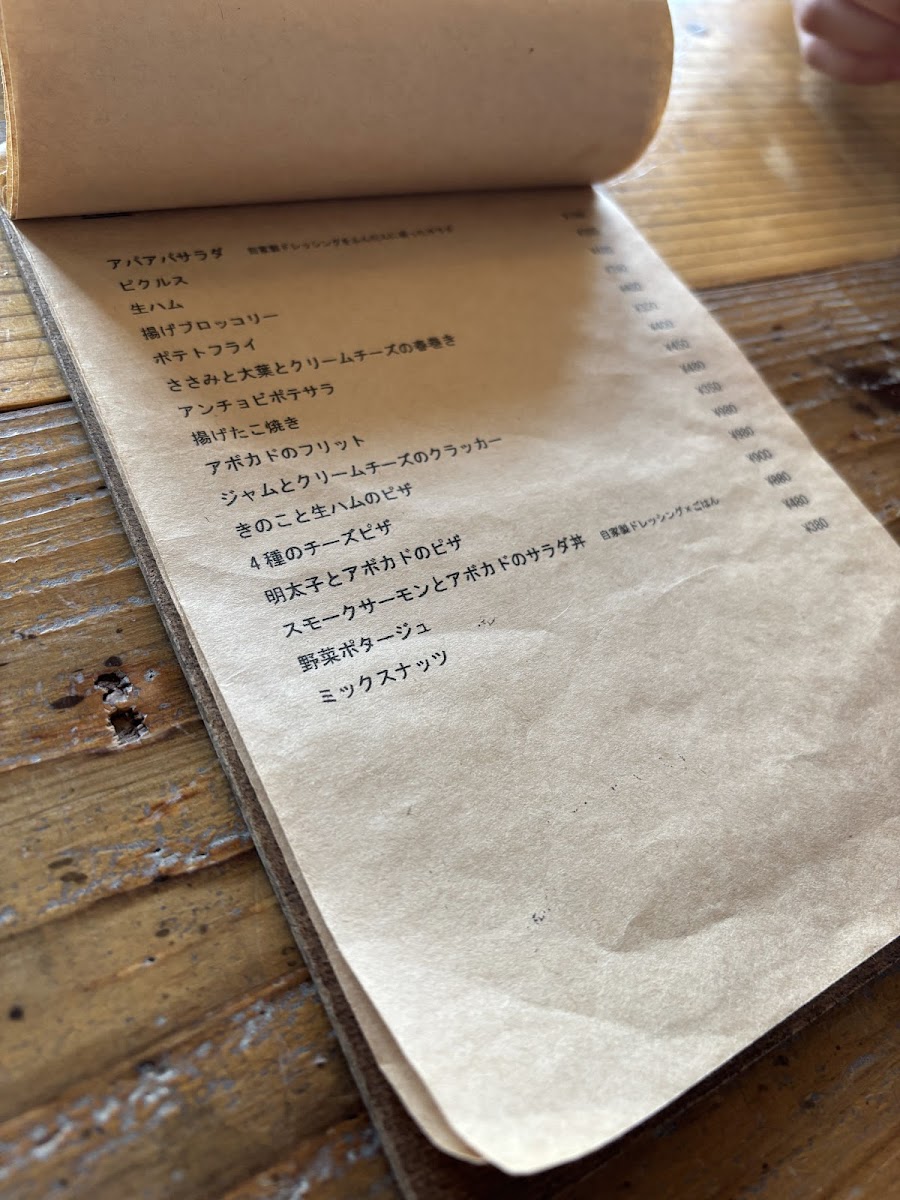 アパアパサラダ 自家製ドレッシングを
ピクルス
生ハム
揚げブロッコリー
ポテトフライ
ささみと大葉とクリームチーズの春巻き
アンチョビポテサラ ¥400
揚げたこ焼き ¥450
アボカドのフリット ¥480
ジャムとクリームチーズのクラッカー ¥350
きのこと生ハムのピザ ¥980
4種のチーズピザ ¥980
明太子とアボカドのピザ ¥900
スモークサーモンとアボカドのサラダ丼 自家製ドレッシング×ごはん ¥880
野菜ポタージュ ¥480
ミックスナッツ ¥380